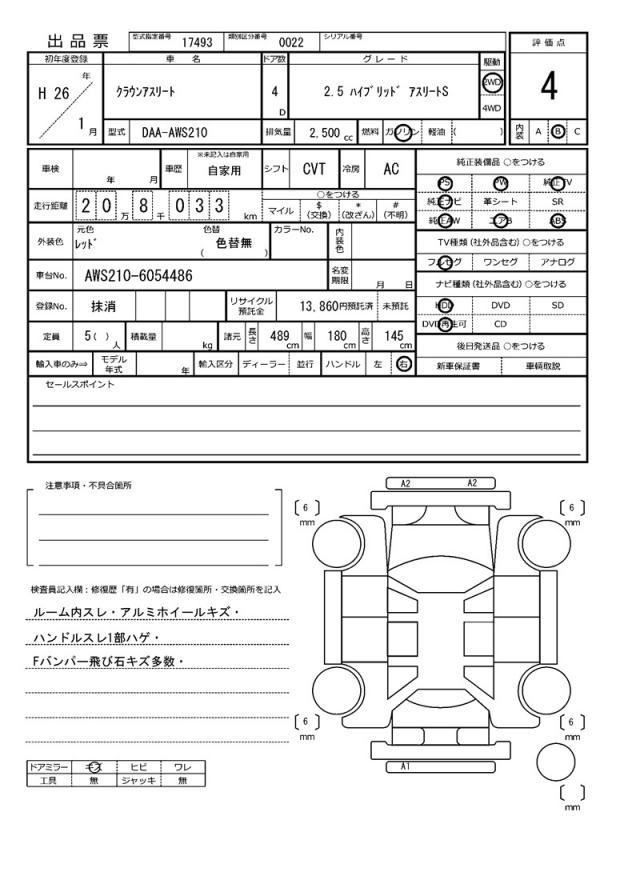 出品票 型式指定番号 17493 類別区分番号 0022 シリアル番号
評価点
4
内装 A B C
初年度登録 車名 ドア数 グレード 駆動
H 26 年 1 月 クラウンアスリート 4 D 2.5 ハイブリッド アスリートS 2WD 4WD
型式 DAA-AWS210 排気量 2,500 cc 燃料 ガソリン 軽油 ( )
車検 年 月 車歴 ※未記入は自家用 自家用 シフト CVT 冷房 AC
走行距離 2 0 万 8 千 0 3 3 km ○をつける マイル $ (交換) * (改ざん) # (不明)
外装色 元色 レッド 色替 ( 色替無 ) カラーNo. 内装色
車台No. AWS210-6054486 名変期限 月 日
登録No. 抹消 リサイクル預託金 13,860円預託済 未預託
定員 5( ) 人 積載量 kg 諸元 長さ 489 cm 幅 180 cm 高さ 145 cm
輸入車のみ⇒ モデル年式 年 輸入区分 ディーラー 並行 ハンドル 左 右
純正装備品 ○をつける
PS PW 純正TV
純正ナビ 革シート SR
純正AW エアB ABS
TV種類(社外品含む)○をつける
フルセグ ワンセグ アナログ
ナビ種類(社外品含む)○をつける
HDD DVD SD
DVD再生可 CD
後日発送品 ○をつける
新車保証書 車輌取説
セールスポイント
注意事項・不具合箇所
検査員記入欄:修復歴「有」の場合は修復箇所・交換箇所を記入
ルーム内スレ・アルミホイールキズ・
ハンドルスレ1部ハゲ・
Fバンパー飛び石キズ多数・
ドアミラー キズ ヒビ ワレ
工具 無 ジャッキ 無
A2 A2
[ 6 ] mm [ 6 ] mm
[ 6 ] mm [ 6 ] mm
A1
[ ] mm